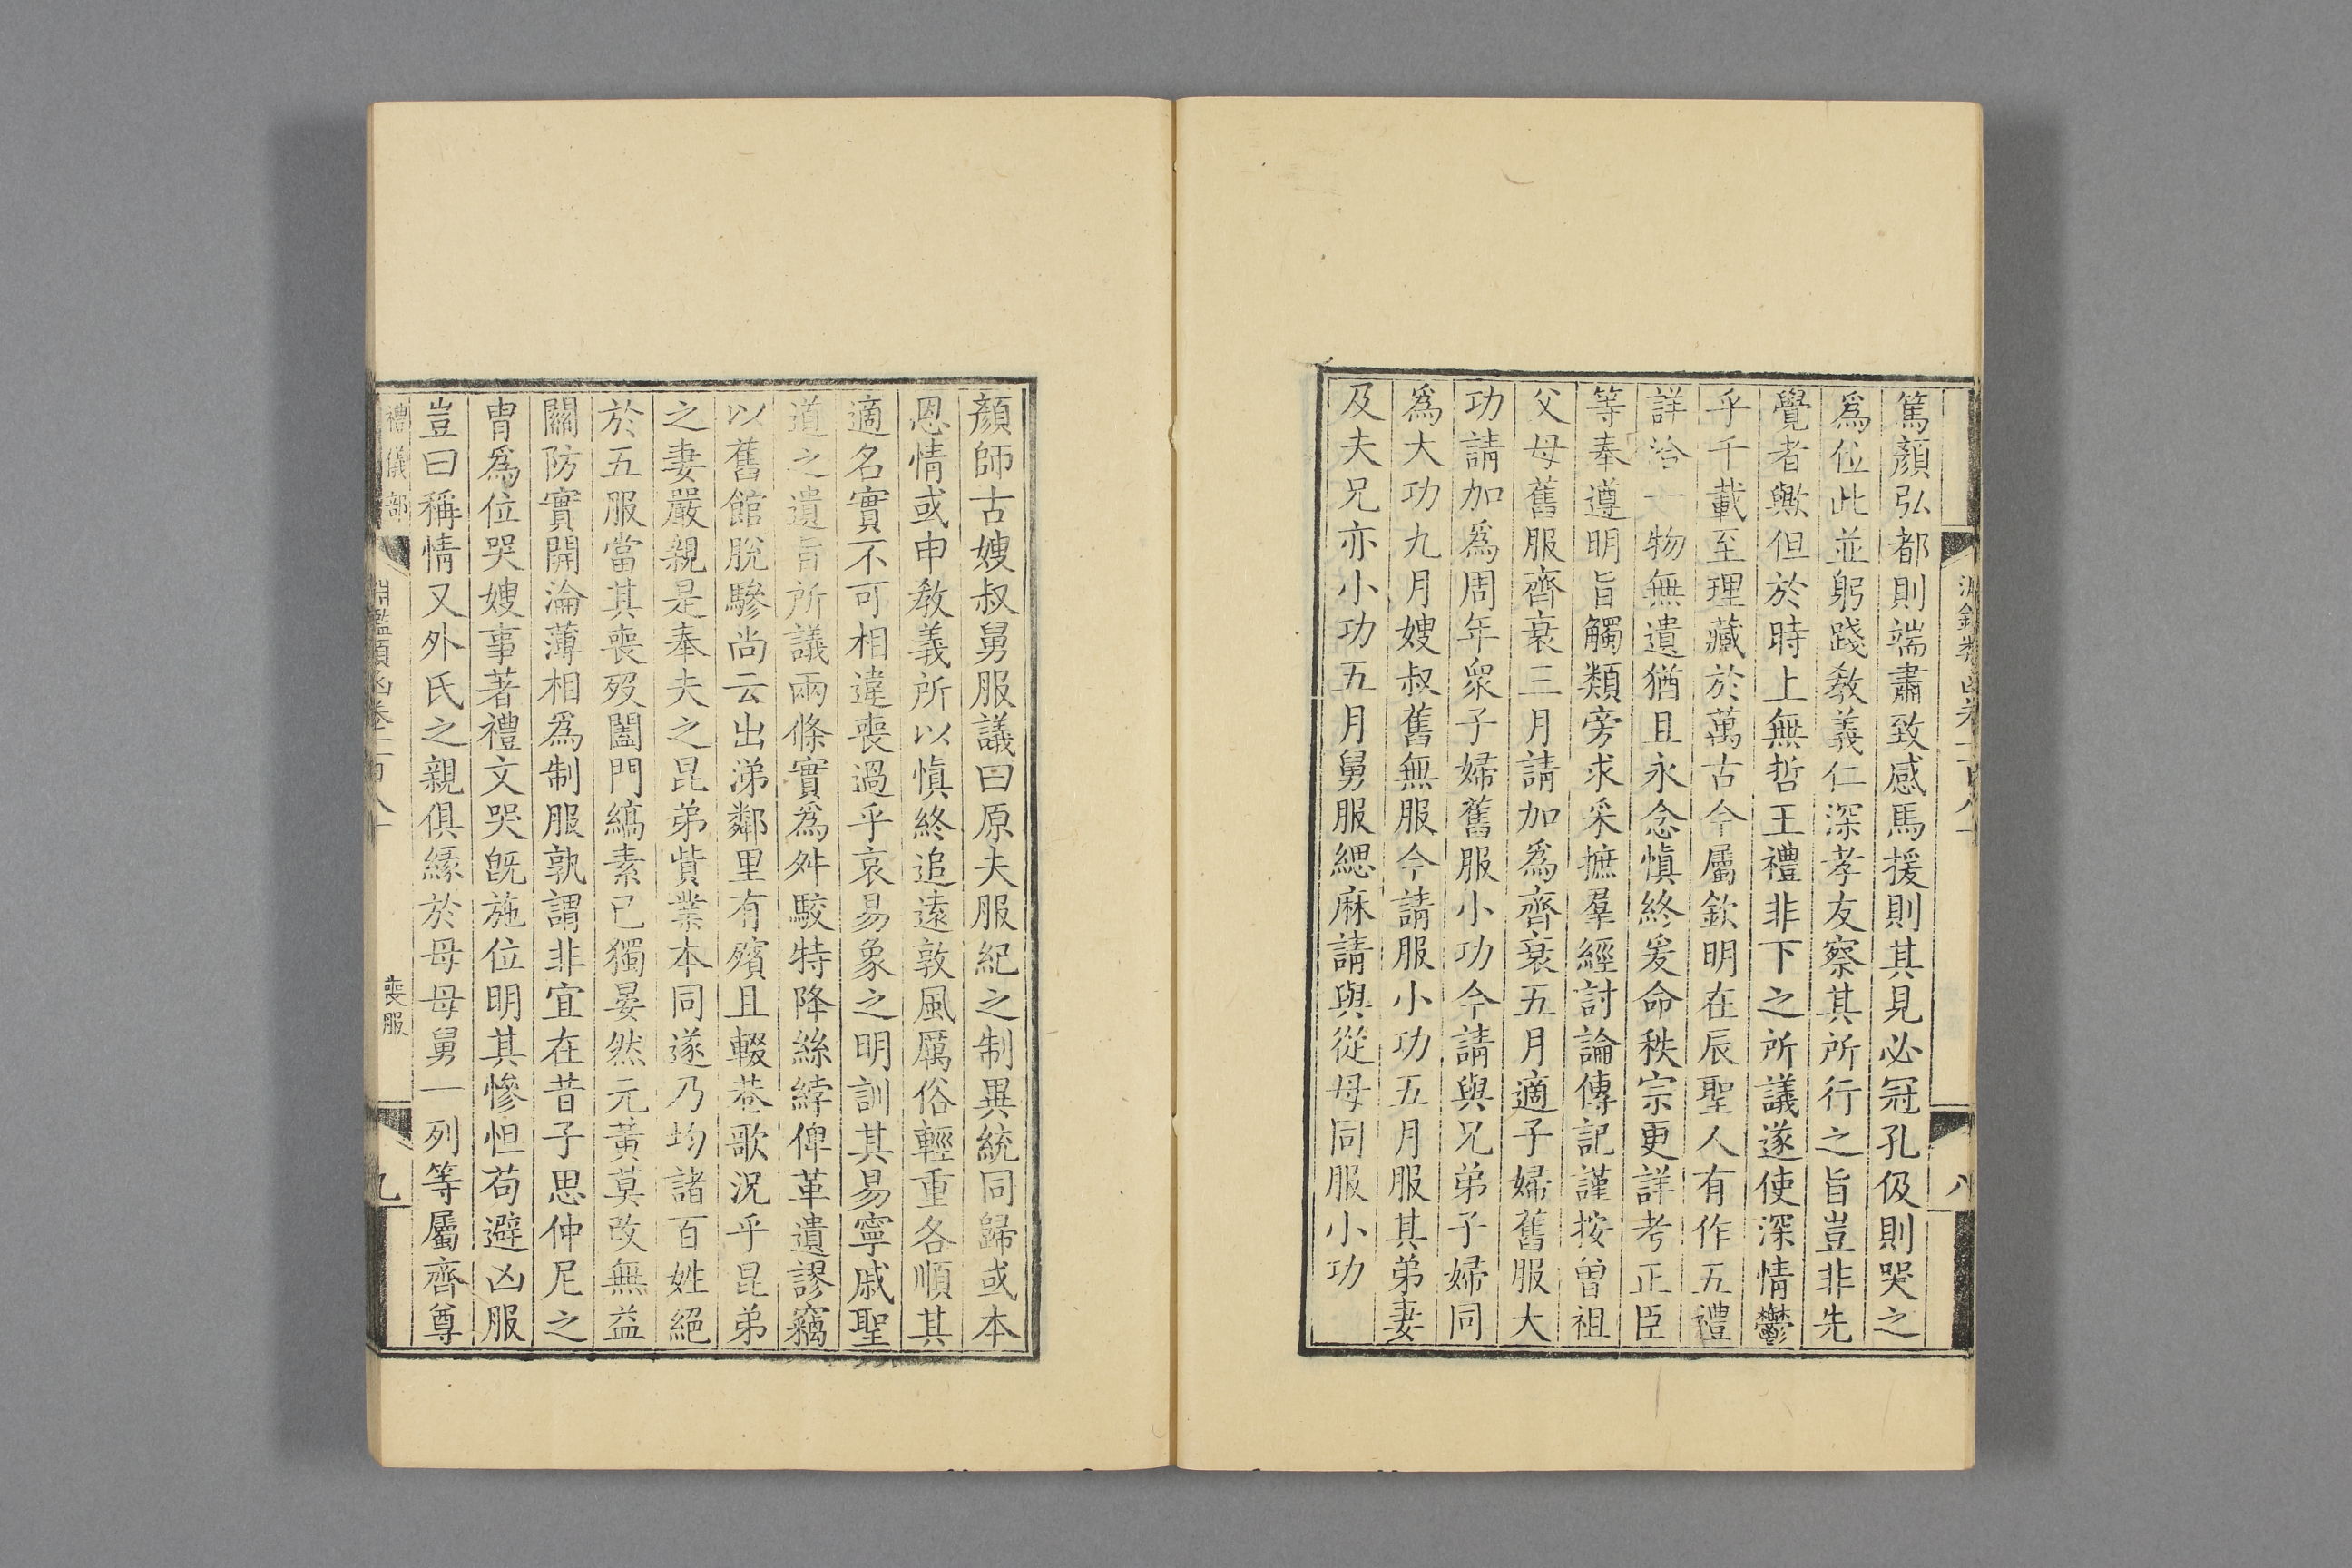 篤顏弘都則端肅致感馬援則其見必冠孔伋則哭之
爲位此並躬踐教義仁深孝友察其所行之旨豈非先
覺者歟但於時上無哲王禮非下之所議遂使深情鬱
乎千載至理藏於萬古今屬欽明在辰聖人有作五禮
詳洽一物無遺猶且永念愼終爰命秩宗更詳考正臣
等奉遵明旨觸類旁求采摭羣經討論傳記謹按曾祖
父母舊服齊衰三月請加爲齊衰五月適子婦舊服大
功請加爲周年衆子婦舊服小功今請與兄弟子婦同
爲大功九月嫂叔舊無服今請服小功五月服其弟妻
及夫兄亦小功五月舅服緦麻請與從母同服小功
顏師古嫂叔舅服議曰原夫服紀之制異統同歸或本
恩情或申教義所以愼終追遠敦風厲俗輕重各順其
適名實不可相違喪過乎哀易象之明訓其易寧戚聖
道之遺旨所議兩條實爲舛駮特降絲綍俾革遺謬竊
以舊館脫驂尚云出涕鄰里有殯且輟巷歌況乎昆弟
之妻嚴親是奉夫之昆弟貲業本同遂乃均諸百姓絕
於五服當其喪歿闔門縞素已獨晏然元黃莫改無益
關防實開淪薄相爲制服孰謂非宜在昔子思仲尼之
胄爲位哭嫂事著禮文哭旣施位明其慘怛苟避凶服
豈曰稱情又外氏之親俱緣於母母舅一列等屬齊尊
禮儀部
淵鑑類函卷一百八十
喪服
九